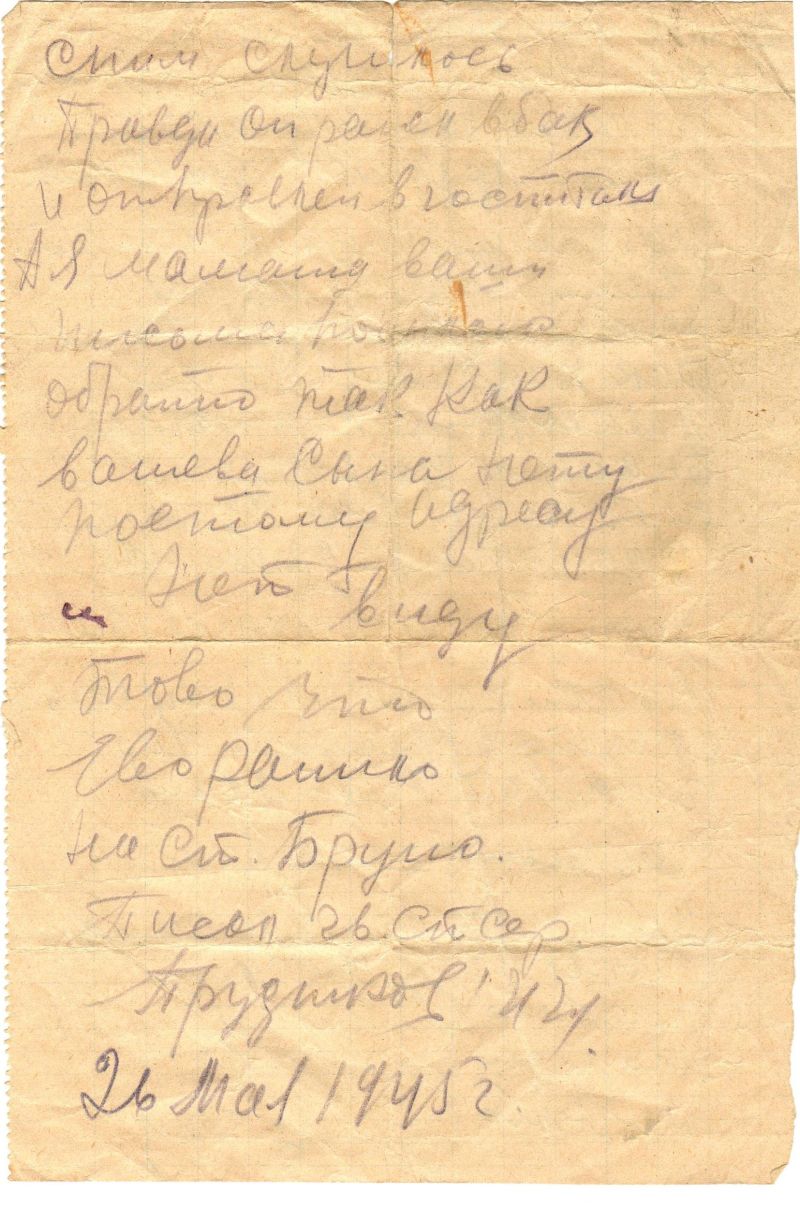 сним случилось
Правда Он ранен вбок
и отправлен вгоспиталь
А я мамаша ваши
письма посилаю
обратно так как
вашева Сына нету
поетому Адресу
нет ввиду
тово что
Ево ранило
на ст. Бруно.
Писал гв. ст сер.
Прудников И И.
26 Мая 1945 г.